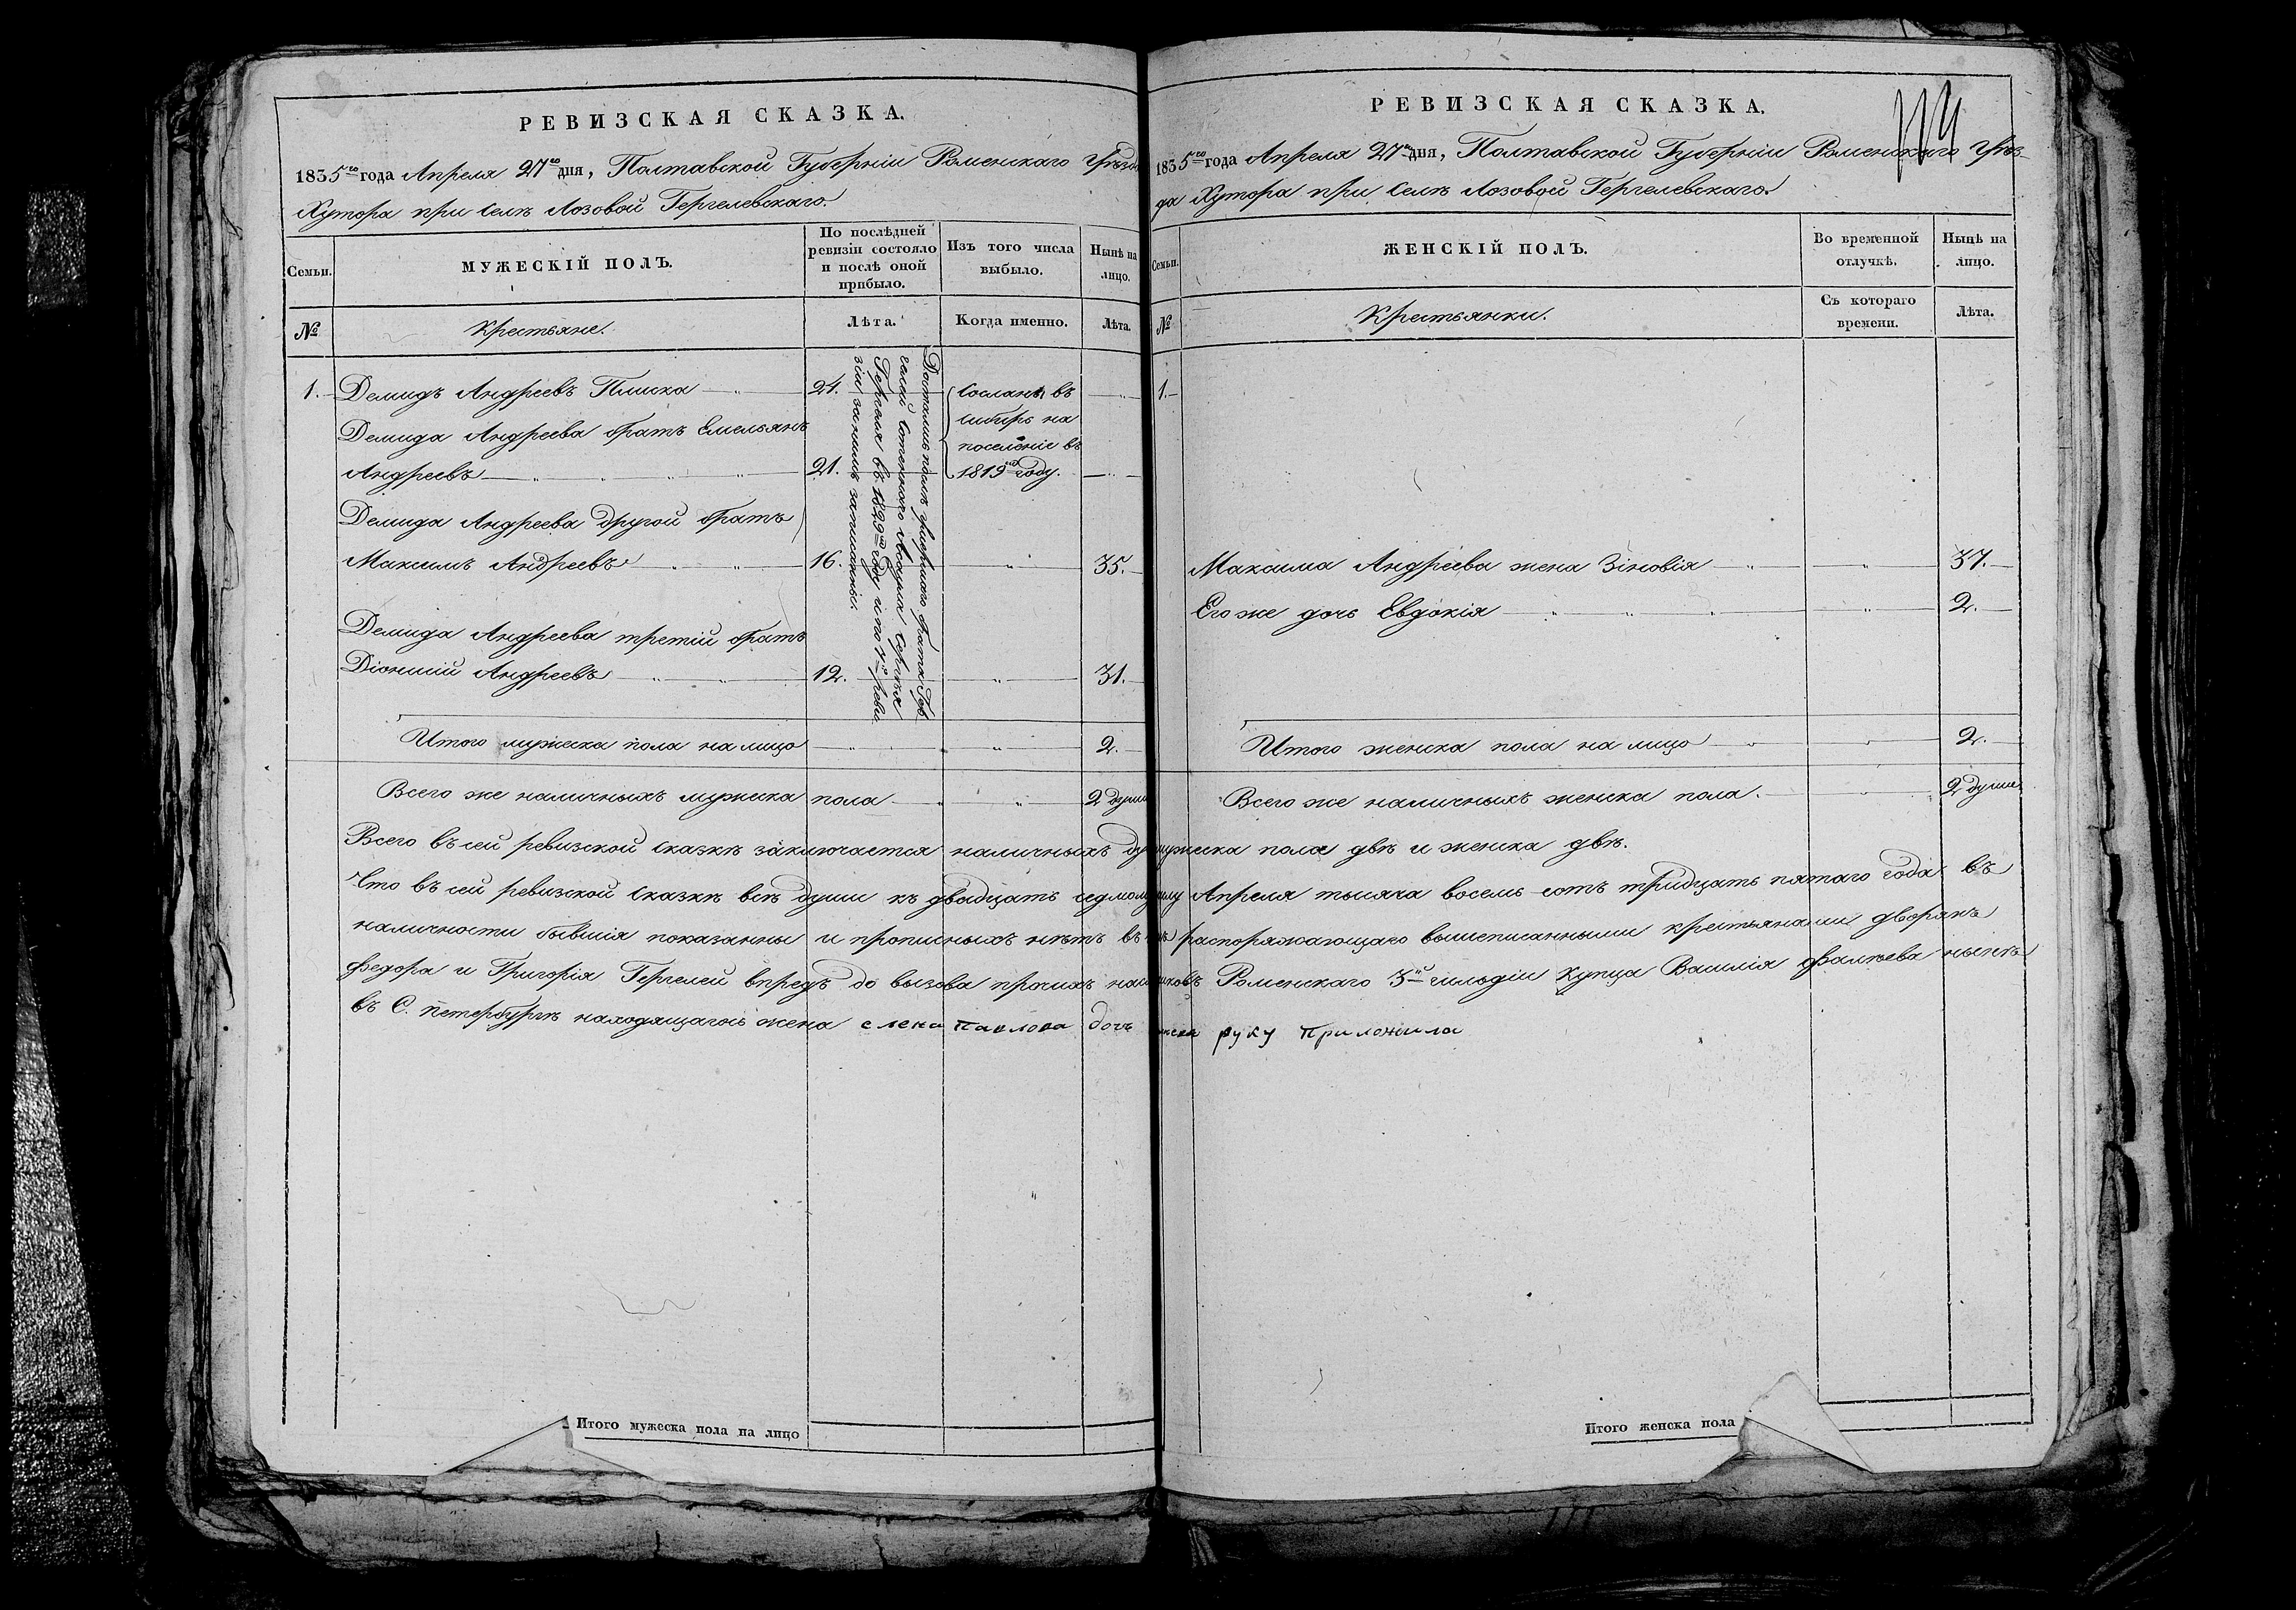 РЕВИЗСКАЯ СКАЗКА.
1835го года Апреля 27го дня, Полтавской Губерніи Роменскаго Уѣзда
Хутора при селѣ Лозовой Гергелевскаго.
Семьи.
МУЖЕСКІЙ ПОЛЪ.
По послѣдней
ревизіи состояло
и послѣ оной
прибыло.
Изъ того числа
выбыло.
Нынѣ на
лицо.
№
Крестьяне.
Лѣта.
Когда именно.
Лѣта.
1. Демидъ Андреевъ Плиска 24.
Демида Андреева братъ Емельянъ
Андреевъ 21.
Сосланы въ
Сибирь на
поселеніе въ
1819мъ году.
Демида Андреева другой братъ
Максимъ Андреевъ 16. 35.
Демида Андреева третій братъ
Діонисій Андреевъ 12. 31.
Достались послѣ умершаго брата Гер
гелей сотеннаго Асаула Сергѣя
Гергеля въ 1829мъ году и по 7й реви
зіи за нимъ записаны.
Итого мужеска пола на лицо 2.
Всего же наличныхъ мужеска пола 2 души
РЕВИЗСКАЯ СКАЗКА.
1835го года Апреля 27го дня, Полтавской Губерніи Роменскаго Уѣз
да Хутора при селѣ Лозовой Гергелевскаго.
Семьи.
ЖЕНСКІЙ ПОЛЪ.
Во временной
отлучкѣ.
Нынѣ на
лицо.
№
Крестьянки.
Съ котораго
времени.
Лѣта.
1.
Максима Андреева жена Зіновія 37.
Его же дочь Евдокія 2.
Итого женска пола на лицо 2.
Всего же наличныхъ женска пола. 2 души
Всего въ сей ревизской сказкѣ заключается наличныхъ мужеска пола двѣ и женска двѣ.
Что въ сей ревизской сказкѣ всѣ души къ двадцать седмому Апреля тысяча восемь сотъ тридцать пятаго года въ
наличности бывшія показанны и прописныхъ нѣтъ въ распоряжающаго вышеписанными крестьянами дворянъ
Федора и Григорія Гергелей впредъ до вызова прочихъ Роменскаго 3й гильдіи купца Василія Фалѣева нынѣ
въ С. Петербургѣ находящагось жена елена Павлова дочь руку приложила
Итого мужеска пола на лицо
Итого женска пола